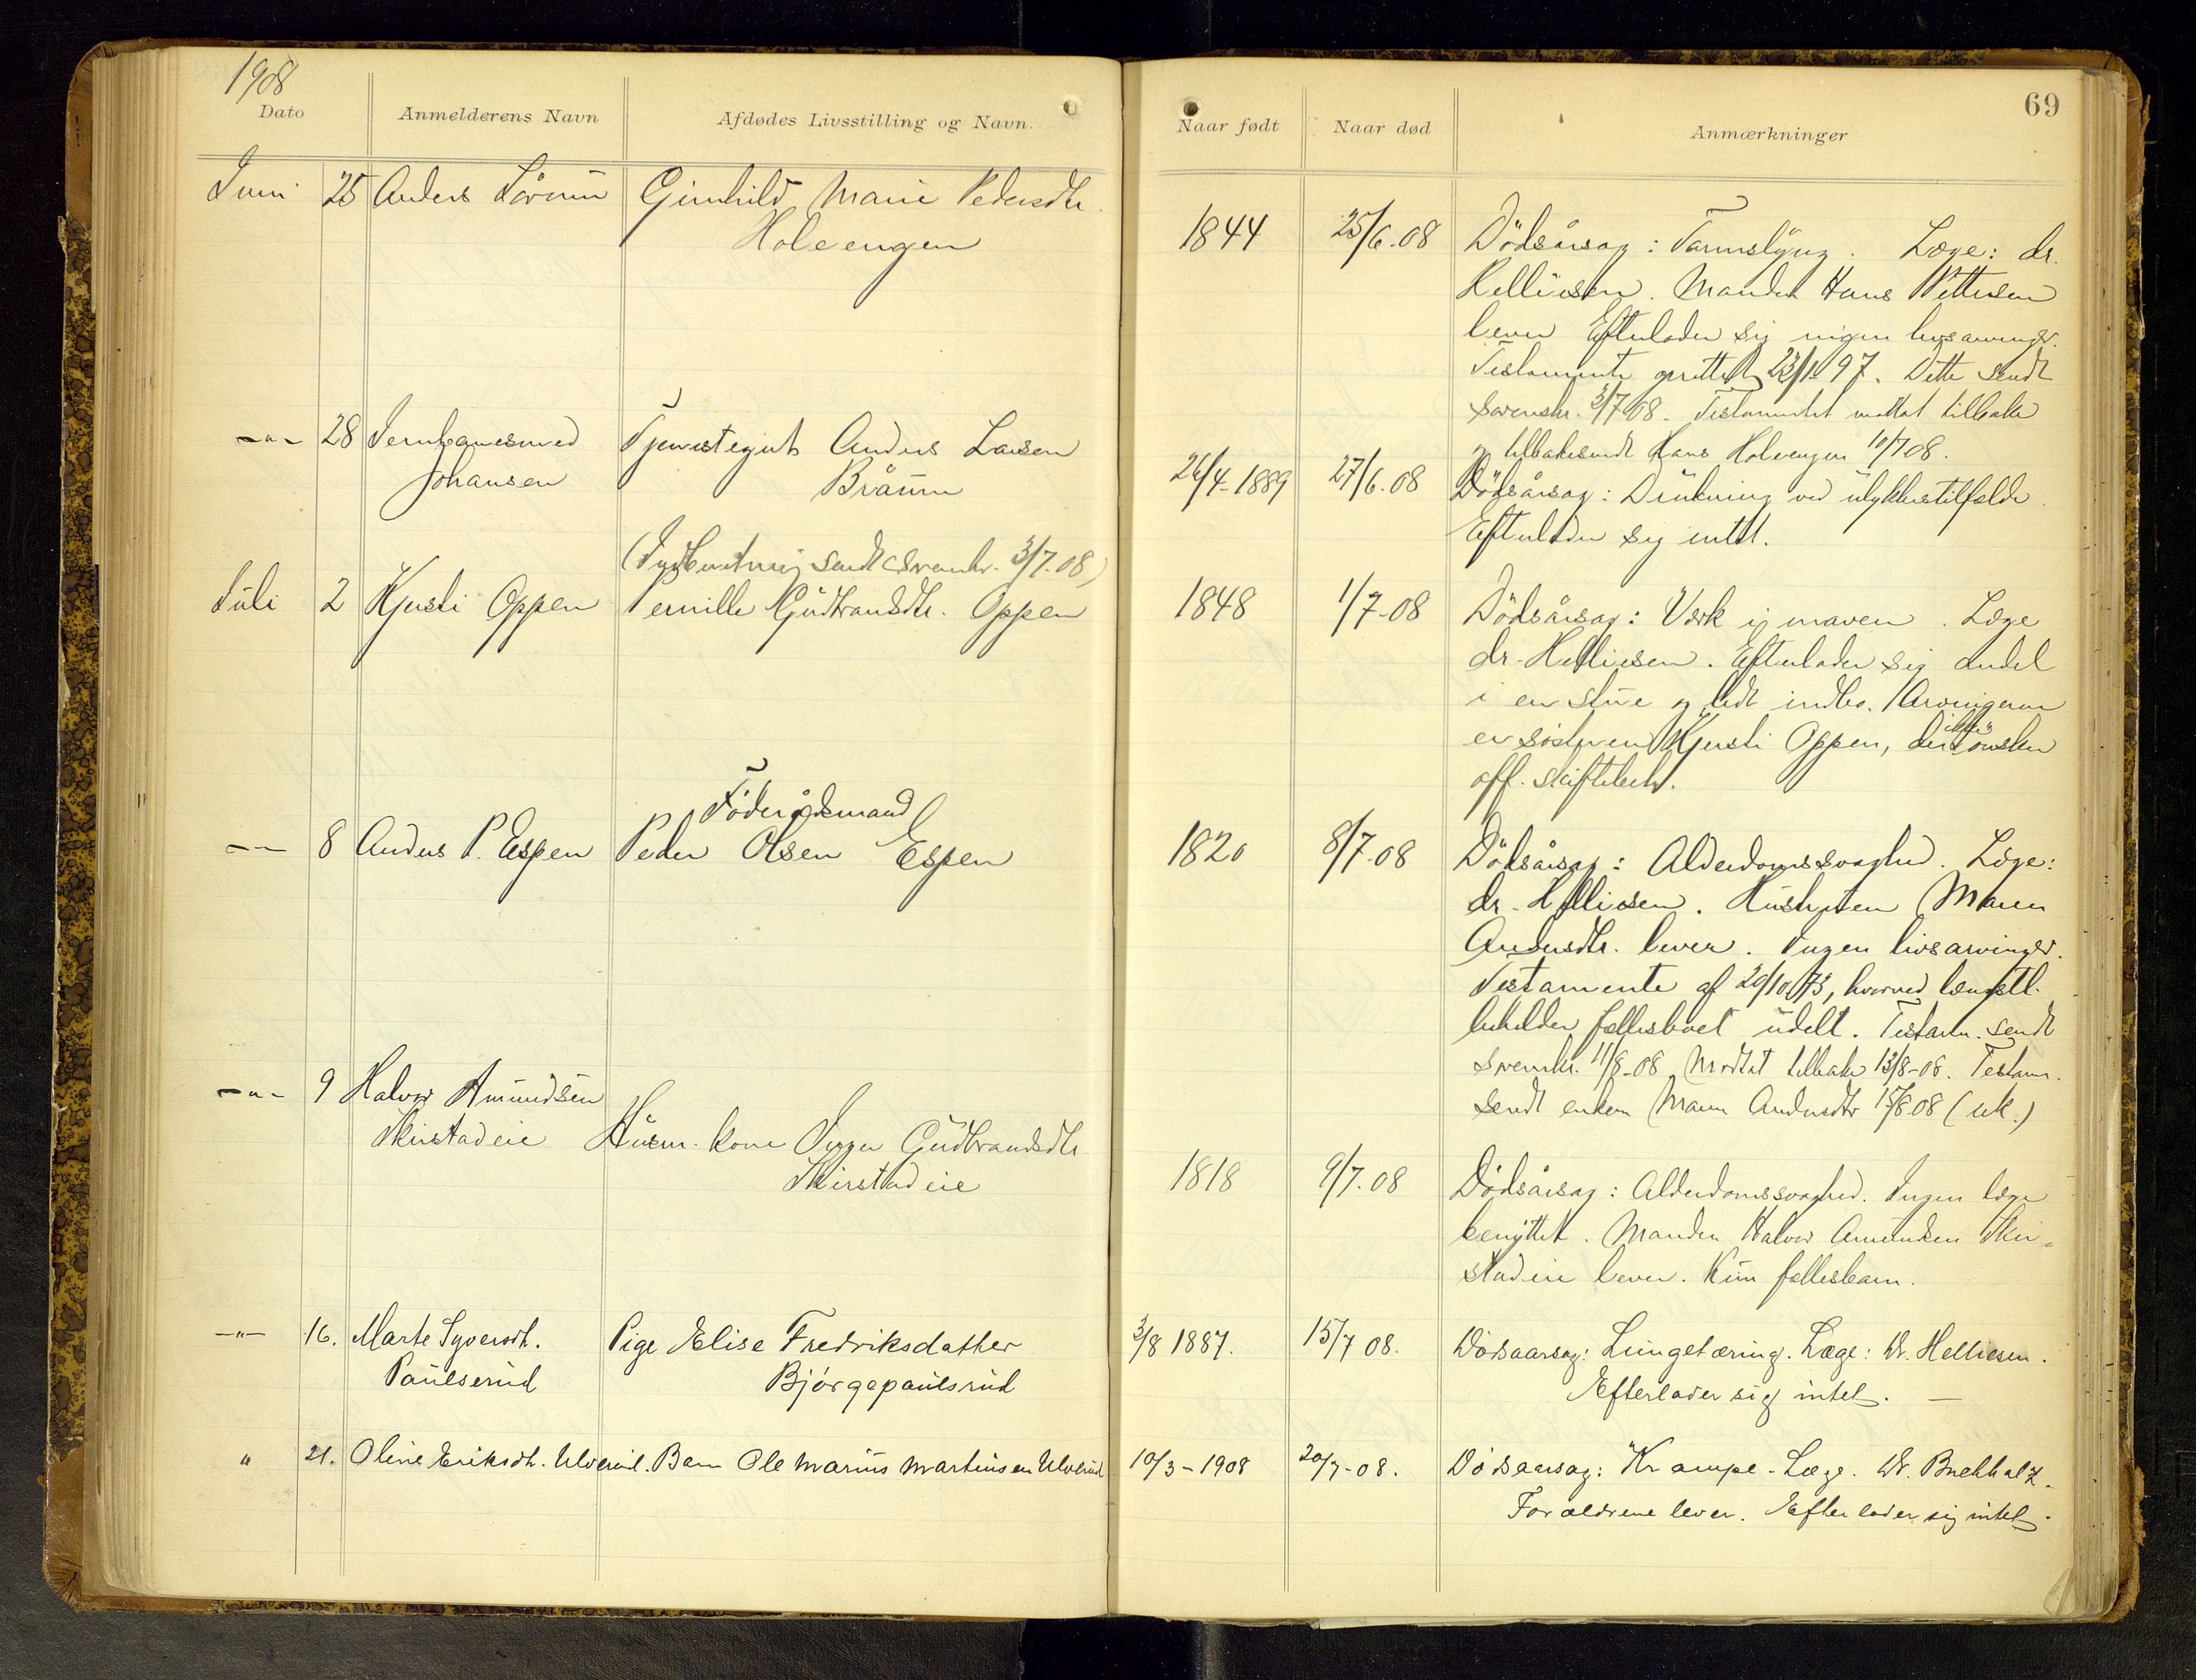 1908
Dato
Anmelderens Navn
Afdødes Livsstilling og Navn.
Naar født
Naar død
Anmærkninger
69
Juni 25 Anders
Gunhild Marie Pedersdtr.
Holeengen
1844
25/6.08
Dödsårsag: Tarmslyng. Læge: dr.
Helliesen. Manden Hans Pettersen
lever Efterlader sig ingen livsarvinger.
Testamente oprettet 23/1 97. Dette sendt
sorenskr. 3/7 08. Testamentet mottat tilbake
og tilbakesendt Hans Holeengen 10/7 08.
-"- 28 Jernbanesmed
Johansen
Tjenstegut Anders Larsen
Bråum
26/4-1889
27/6.08
Dödsårsag: Drukning ved ulykkestilfælde.
Efterlader sig intet.
(Indberetning sendt sorenskr. 3/7.08)
Juli 2 Kjersti Oppen
Pernille Gudbrandsdtr. Oppen
1848
1/7-08
Dödsårsag: Verk i maven. Læge
dr. Helliesen. Efterlader sig andel
i en stue og lidt indbo. Arvingerne
er søsteren Kjersti Oppen, der ikke ønsker
off. skiftebeh.
-"- 8 Anders P. Espen
Föderådsmand
Peder Olsen Espen
1820
8/7-08
Dödsårsag: Alderdomssvaghed. Læge:
dr. Helliesen. Hustruen Maren
Andersdtr. lever. Ingen livsarvinger.
Testamente af 20/10 73, hvorved længstl.
beholder fællesboet udelt. Testam. sendt
sorenskr. 11/8-08 Mottat tilbake 13/8-08. Testam.
sendt enken Maren Andersdtr 15/8 08 (rek.)
-"- 9 Halvor Amundsen
Skirstadeie
Husm. kone Inger Gudbrandsdtr.
Skirstadeie
1818
9/7.08
Dödsårsag: Alderdomssvaghed. Ingen læge
benyttet. Manden Halvor Amundsen Skir-
stadeie lever. Kun fællesbarn.
-"- 16. Marte Syversdt.
Paulserud
Pige Elise Fredriksdatter
Bjørgepaulsrud
3/8 1887.
15/7 08.
Dødsaarsag: Lungetæring. Læge: Dr. Helliesen.
Efterlader sig intet. —
" 21. Oline Eriksdt. Ulverud.
Barn Ole Marius Martinsen Ulverud
10/3-1908
20/7-08.
Dødsaarsag: Krampe. Læge. Dr. Buchholz.
Forældrene lever. Efterlader sig intet.